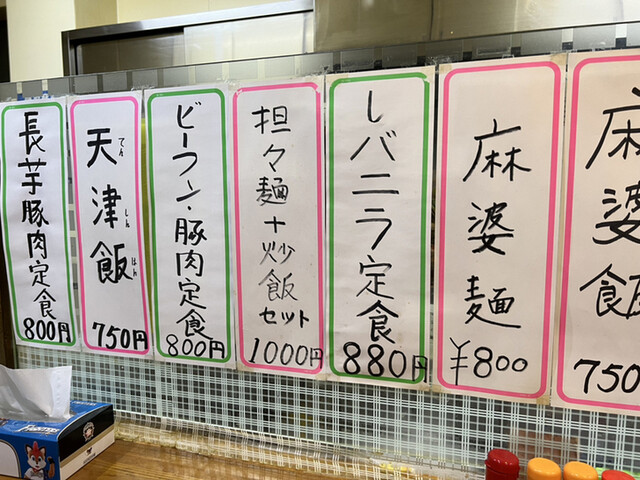 麻婆飯
750
麻婆麺
¥800
レバニラ定食
880円
担々麺+炒飯
セット
1000円
ビーフン・豚肉定食
800円
天津飯
てんしんはん
750円
長芋豚肉定食
800円